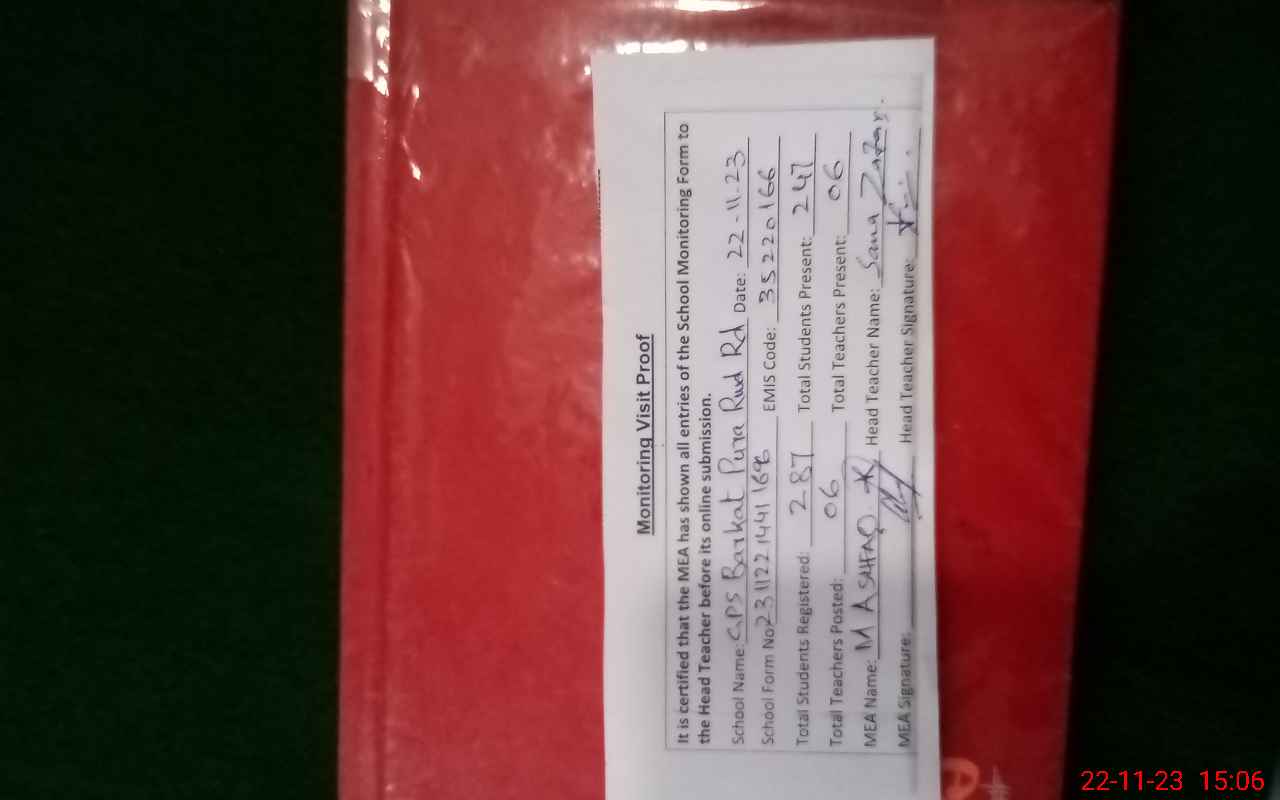 Monitoring Visit Proof
It is certified that the MEA has shown all entries of the School Monitoring Form to
the Head Teacher before its online submission.
School Name: GPS Barkat Pura Rwd Rd Date: 22-11-23
School Form No EMIS Code: 35220166
Total Students Registered: 287 Total Students Present: 247
Total Teachers Posted: 06 Total Teachers Present: 06
MEA Name: M ASHFAQ Head Teacher Name: Sana Zafar.
MEA Signature: Head Teacher Signature:
22-11-23 15:06